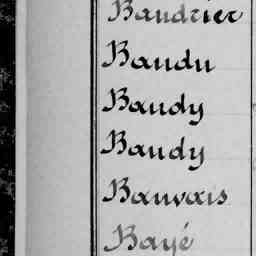 Baudrier
Baudu
Baudy
Baudy
Bauvais
Bayé